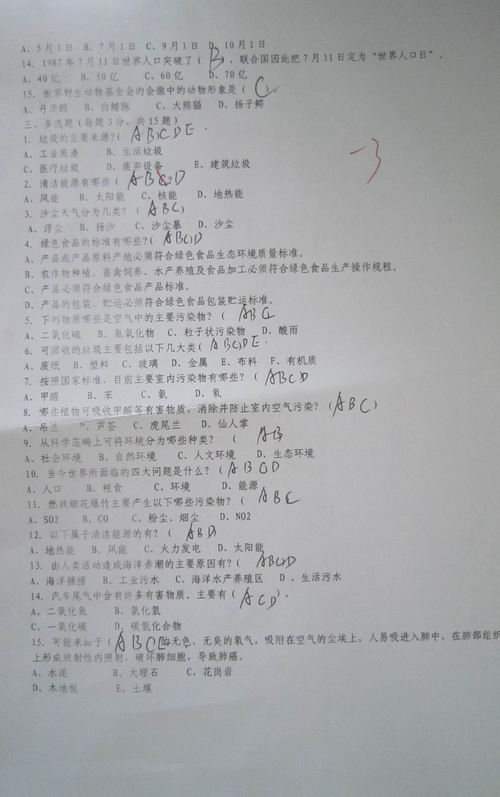 A、5月1日 B、7月1日 C、9月1日 D、10月1日
14、1987年7月11日世界人口突破了（ B ），联合国因此把7月11日定为“世界人口日”。
A、40亿 B、50亿 C、60亿 D、70亿
15、世界野生动物基金会的会徽中的动物形象是（ C ）
A、丹顶鹤 B、白鳍豚 C、大熊猫 D、扬子鳄
三、多选题（每题3分、共15题）
1、垃圾的主要来源?( ABCDE ·
A、工业废渣 B、生活垃圾
C、医疗垃圾 D、废弃设备 E、建筑垃圾
-3
2、清洁能源有哪些（ ABCD
A、风能 B、太阳能 C、核能 D、地热能
3、沙尘天气分为几类?（ ABC）
A、浮尘 B、扬沙 C、沙尘暴 D、沙尘
4、绿色食品的标准有哪些?( ABCD
A、产品或产品原料产地必须符合绿色食品生态环境质量标准。
B、农作物种植、畜禽饲养、水产养殖及食品加工必须符合绿色食品生产操作规程。
C、产品必须符合绿色食品产品标准。
D、产品的包装、贮运必须符合绿色食品包装贮运标准。
5、下列物质哪些是空气中的主要污染物?（ ABC
A、二氧化碳 B、氮氧化物 C、粒子状污染物 D、酸雨
6、可回收的垃圾主要包括以下几大类( ABCDE ·
A、废纸 B、塑料 C、玻璃 D、金属 E、布料 F、有机质
7、按照国家标准、目前主要室内污染物有哪些?（ ABCD
A、甲醛 B、苯 C、氨 D、氡
8、哪些植物可吸收甲醛等有害物质，消除并防止室内空气污染?（ABC）
A、吊兰 、芦荟 C、虎尾兰 D、仙人掌
9、从科学范畴上可将环境分为哪些种类?（ AB
A、社会环境 B、自然环境 C、人文环境 D、生态环境
10、当今世界所面临的四大问题是什么?（ ABCD
A、人口 B、粮食 C、环境 D、能源
11、燃放烟花爆竹主要产生以下哪些污染物?（ ABC
A、SO2 B、CO C、粉尘、烟尘 D、NO2
12、以下属于清洁能源的有?（ ABD
A、地热能 B、风能 C、火力发电 D、太阳能
13、由人类活动造成海洋赤潮的主要原因有?（ ABCD
A、海洋捕捞 B、工业污水 C、海洋水产养殖区 D、生活污水
14、汽车尾气中含有许多有害物质。主要有（ ACD）.
A、二氧化氮 B、氯化氢
C、一氧化碳 D、碳氢化合物
15、可能来源于（ ABCE 无色、无臭的氡气，吸附在空气的尘埃上，人易吸进入肺中，在肺部组织
上形成放射性内照射、破坏肺细胞，导致肺癌。
A、水泥 B、大理石 C、花岗岩
D、木地板 E、土壤